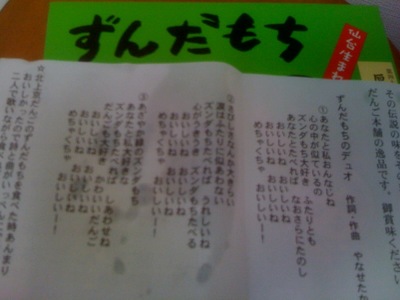 ずんだもち
仙台生まれ
その伝説の味を
だんご本舗の逸品です。御賞味くださ
ずんだもちのデュオ　作詞・作曲　やなせたか
①あなたと私おんなじね
心の中が似ているの
ズンダもち大好き　ふたりとも
あなたとたべれば　なおさらにたのし
おいしいね　おいしいね
おいしいね　おいしいね
めちゃくちゃ　おいしいー！
②さびしさなんか大きらい
涙はふたりに似あわない
心がうきうき　ズンダもちたべる
ズンダもちたべれば　うれしいね
おいしいね　おいしいね
おいしいね　おいしいね
めちゃくちゃ　おいしいー！
③あざやか緑のズンダもち
あなたといっしょ
ズンダもちたべれば　しあわせね
だんごも大好き　かわいいだんご
おいしいね　おいしいね
おいしいね　おいしいね
めちゃくちゃ　おいしいー！
☆北上京だんごのずんだもちを食べた時あんまり
おいしかったのでこの
二人で歌いながら食べると